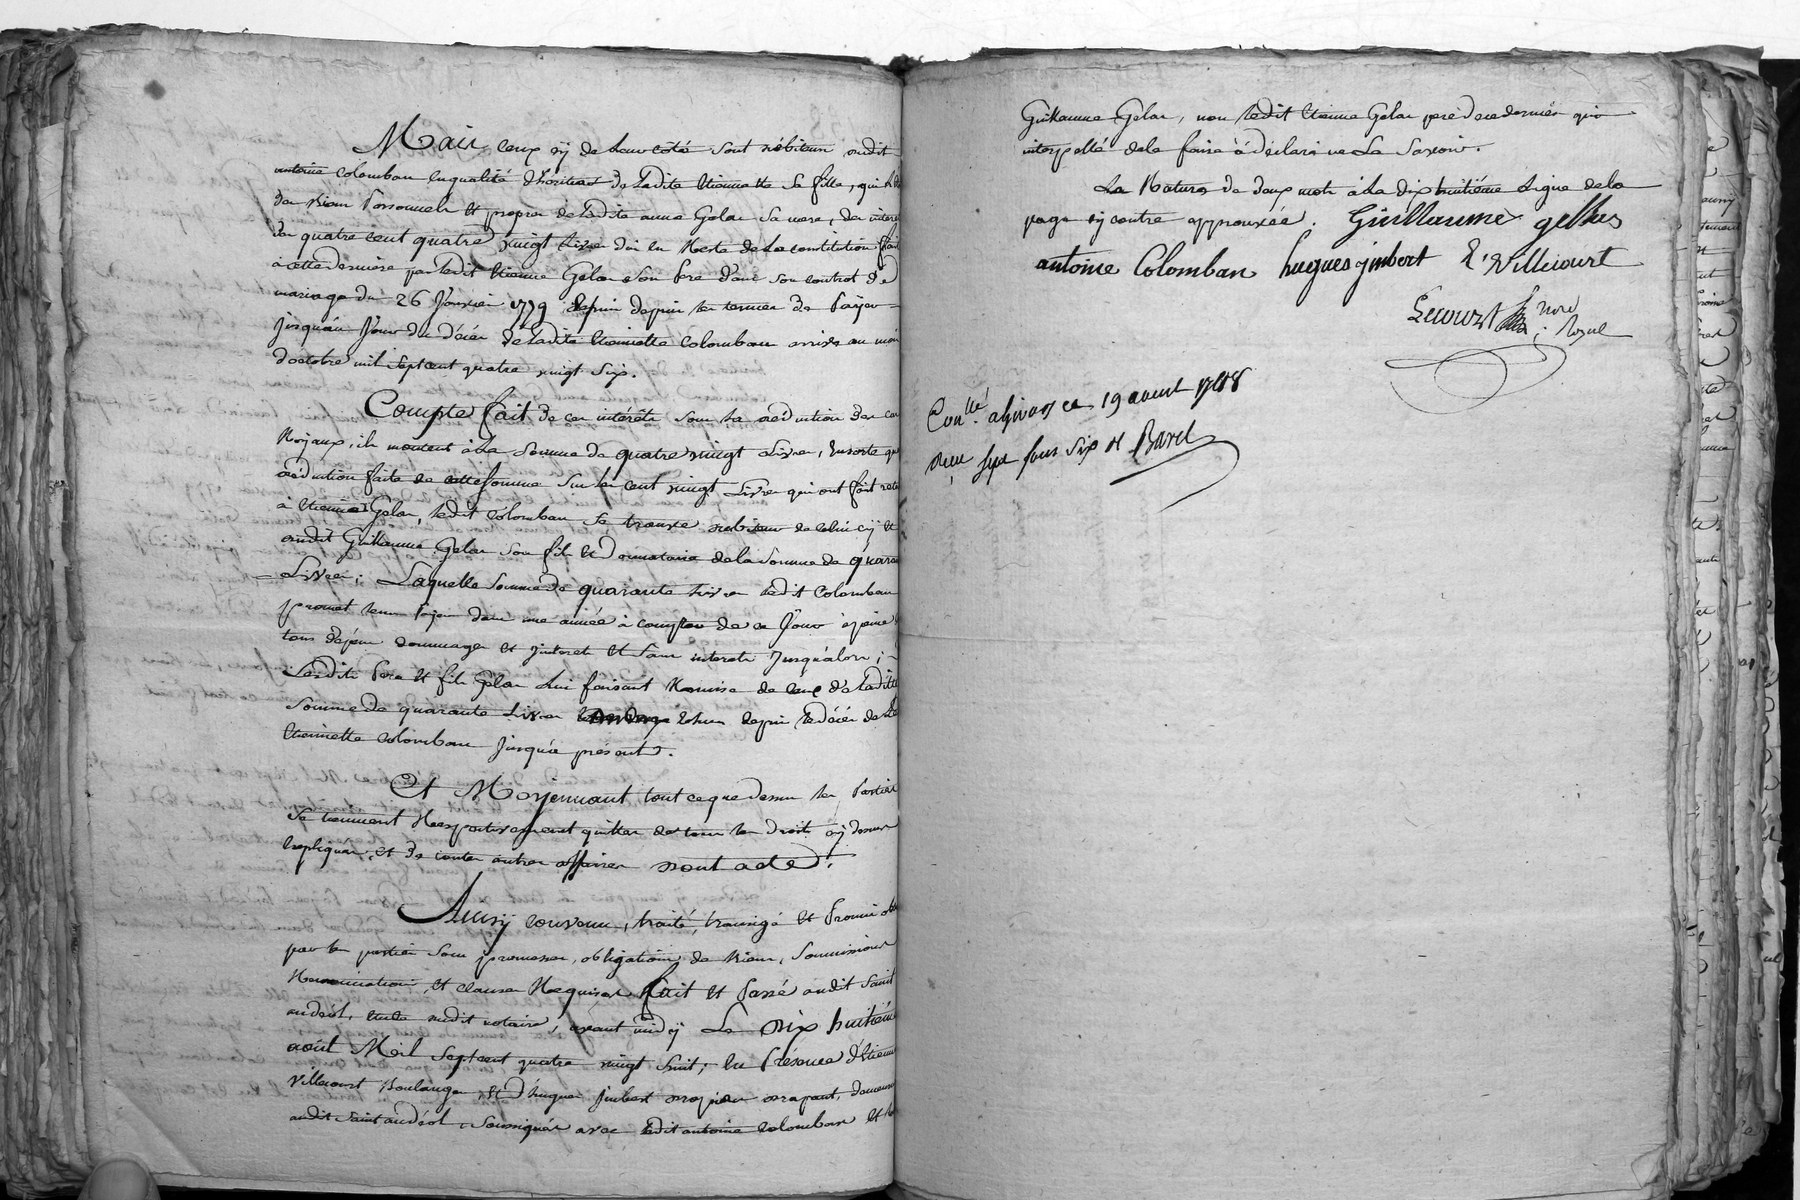 Mais ceux cy de leur coté sont debiteurs audit
antoine Colomban en qualité d'heritier de Ladite Etiennette Sa fille, qui
des biens Personnels et propres de Ladite anne Gelas Sa mere, des interets
des quatre cent quatre vingt Livres du en Reste de La constitution fait
à cette derniere par Ledit Etienne Gelas Son Pere dans son contrat de
mariage du 26 Janvier 1779 depuis les termes de Payer
jusqu'au Jour du décés de Ladite Etiennette Colomban arrivé au mois
d'octobre mil sept cent quatre vingt Six.
Compte fait de ces intérêts sous la deduction des cas
Royaux, ils montent à La Somme de quatre vingt Livres, Ensorte que
déduction faite de cette Somme Sur les cent vingt Livres qui ont fait
à Etienne Gelas, Ledit Colomban Se trouve debiteur de celui cy et
audit Guillaume Gelas son fils et donnataire de la Somme de quarante
Livres; Laquelle Somme de quarante Livres Ledit Colomban
promet leur Payer dans une année à compter de ce Jour à peine
tous dépens dommages et jnterets et Sans interets Jusqu'alors;
Lesdits Pere et fils Gelas Lui faisant Remise de ceux de Ladite
Somme de quarante Livres Echus depuis Le décés de
Etiennette Colomban jusqu'à présent.
Et Moyennant tout ce que dessus les Parties
Se tiennent Respectivement quittes de tous les droits cy dessus
expliqués, et de toutes autres affaires dont acte.
Ainsy convenu, traité, transigé et Promis
par les parties sous promesses, obligations de biens, Soumissions
Renonciations, et clauses Requises fait et Passé audit Saint
andéol, Etude dudit notaire, avant midy Le dix huitiéme
août Mil Sept cent quatre vingt huit; En Présence d'Etienne
Villecourt Boulanger, et d'hugues Jmbert drapier drapant, demeurants
audit Saint andéol, Soussignés avec Ledit antoine Colomban et
Guillaume Gelas, non Ledit Etienne Gelas pere de ce dernier qui
interpellé de le faire à déclaré ne La Savoir.
La Rature de deux mots à La dix huitiéme Ligne de la
page cy contre approuvée. Guillaume gellas
antoine Colomban hugues jmbert E. Villecourt
Lecourt nore Royal
Conllé ahivors ce 19 aoust 1788
Reçu sept sous six d Borel